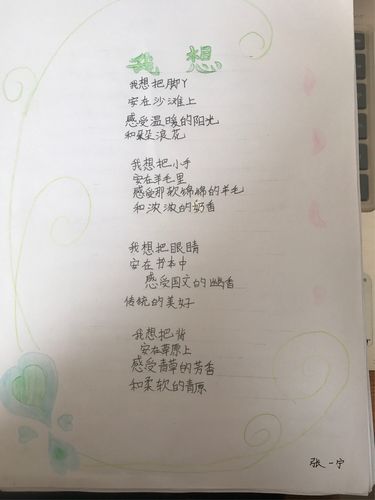 我想
我想把脚丫
安在沙滩上
感受温暖的阳光
和朵朵浪花
我想把小手
安在羊毛里
感受那软绵绵的羊毛
和浓浓的奶香
我想把眼睛
安在书本中
感受图文的幽香
传统的美好
我想把背
安在草原上
感受青草的芳香
和柔软的青原
张一宁